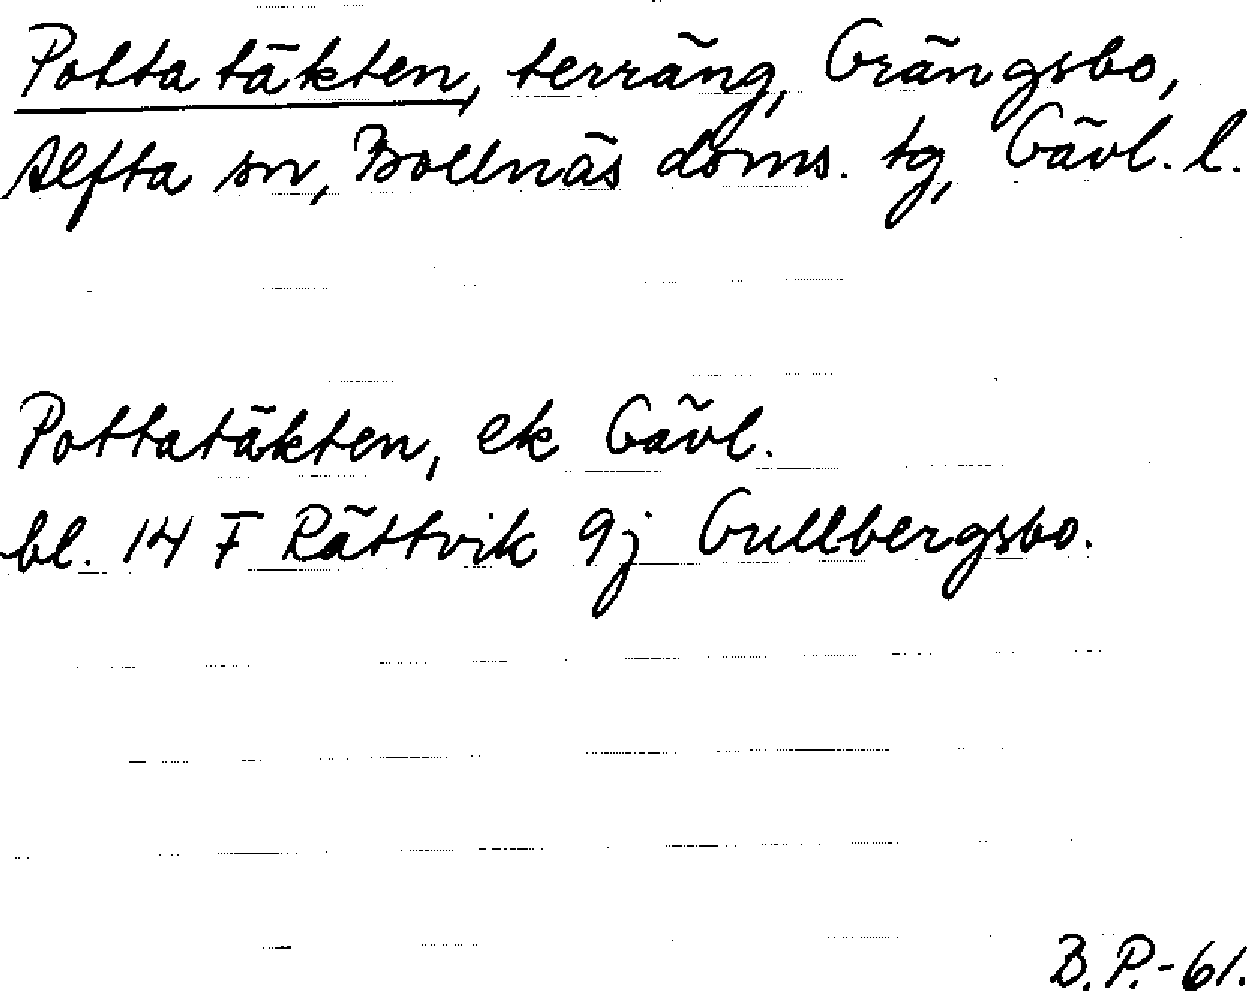 Pottatäkten, terräng, Grängsbo,
Alfta sn, Bollnäs doms. tg, Gävl. l.
Pottatäkten, ek Gävl.
bl. 14 F Rättvik 9j Gullbergsbo.
B.P.-61.